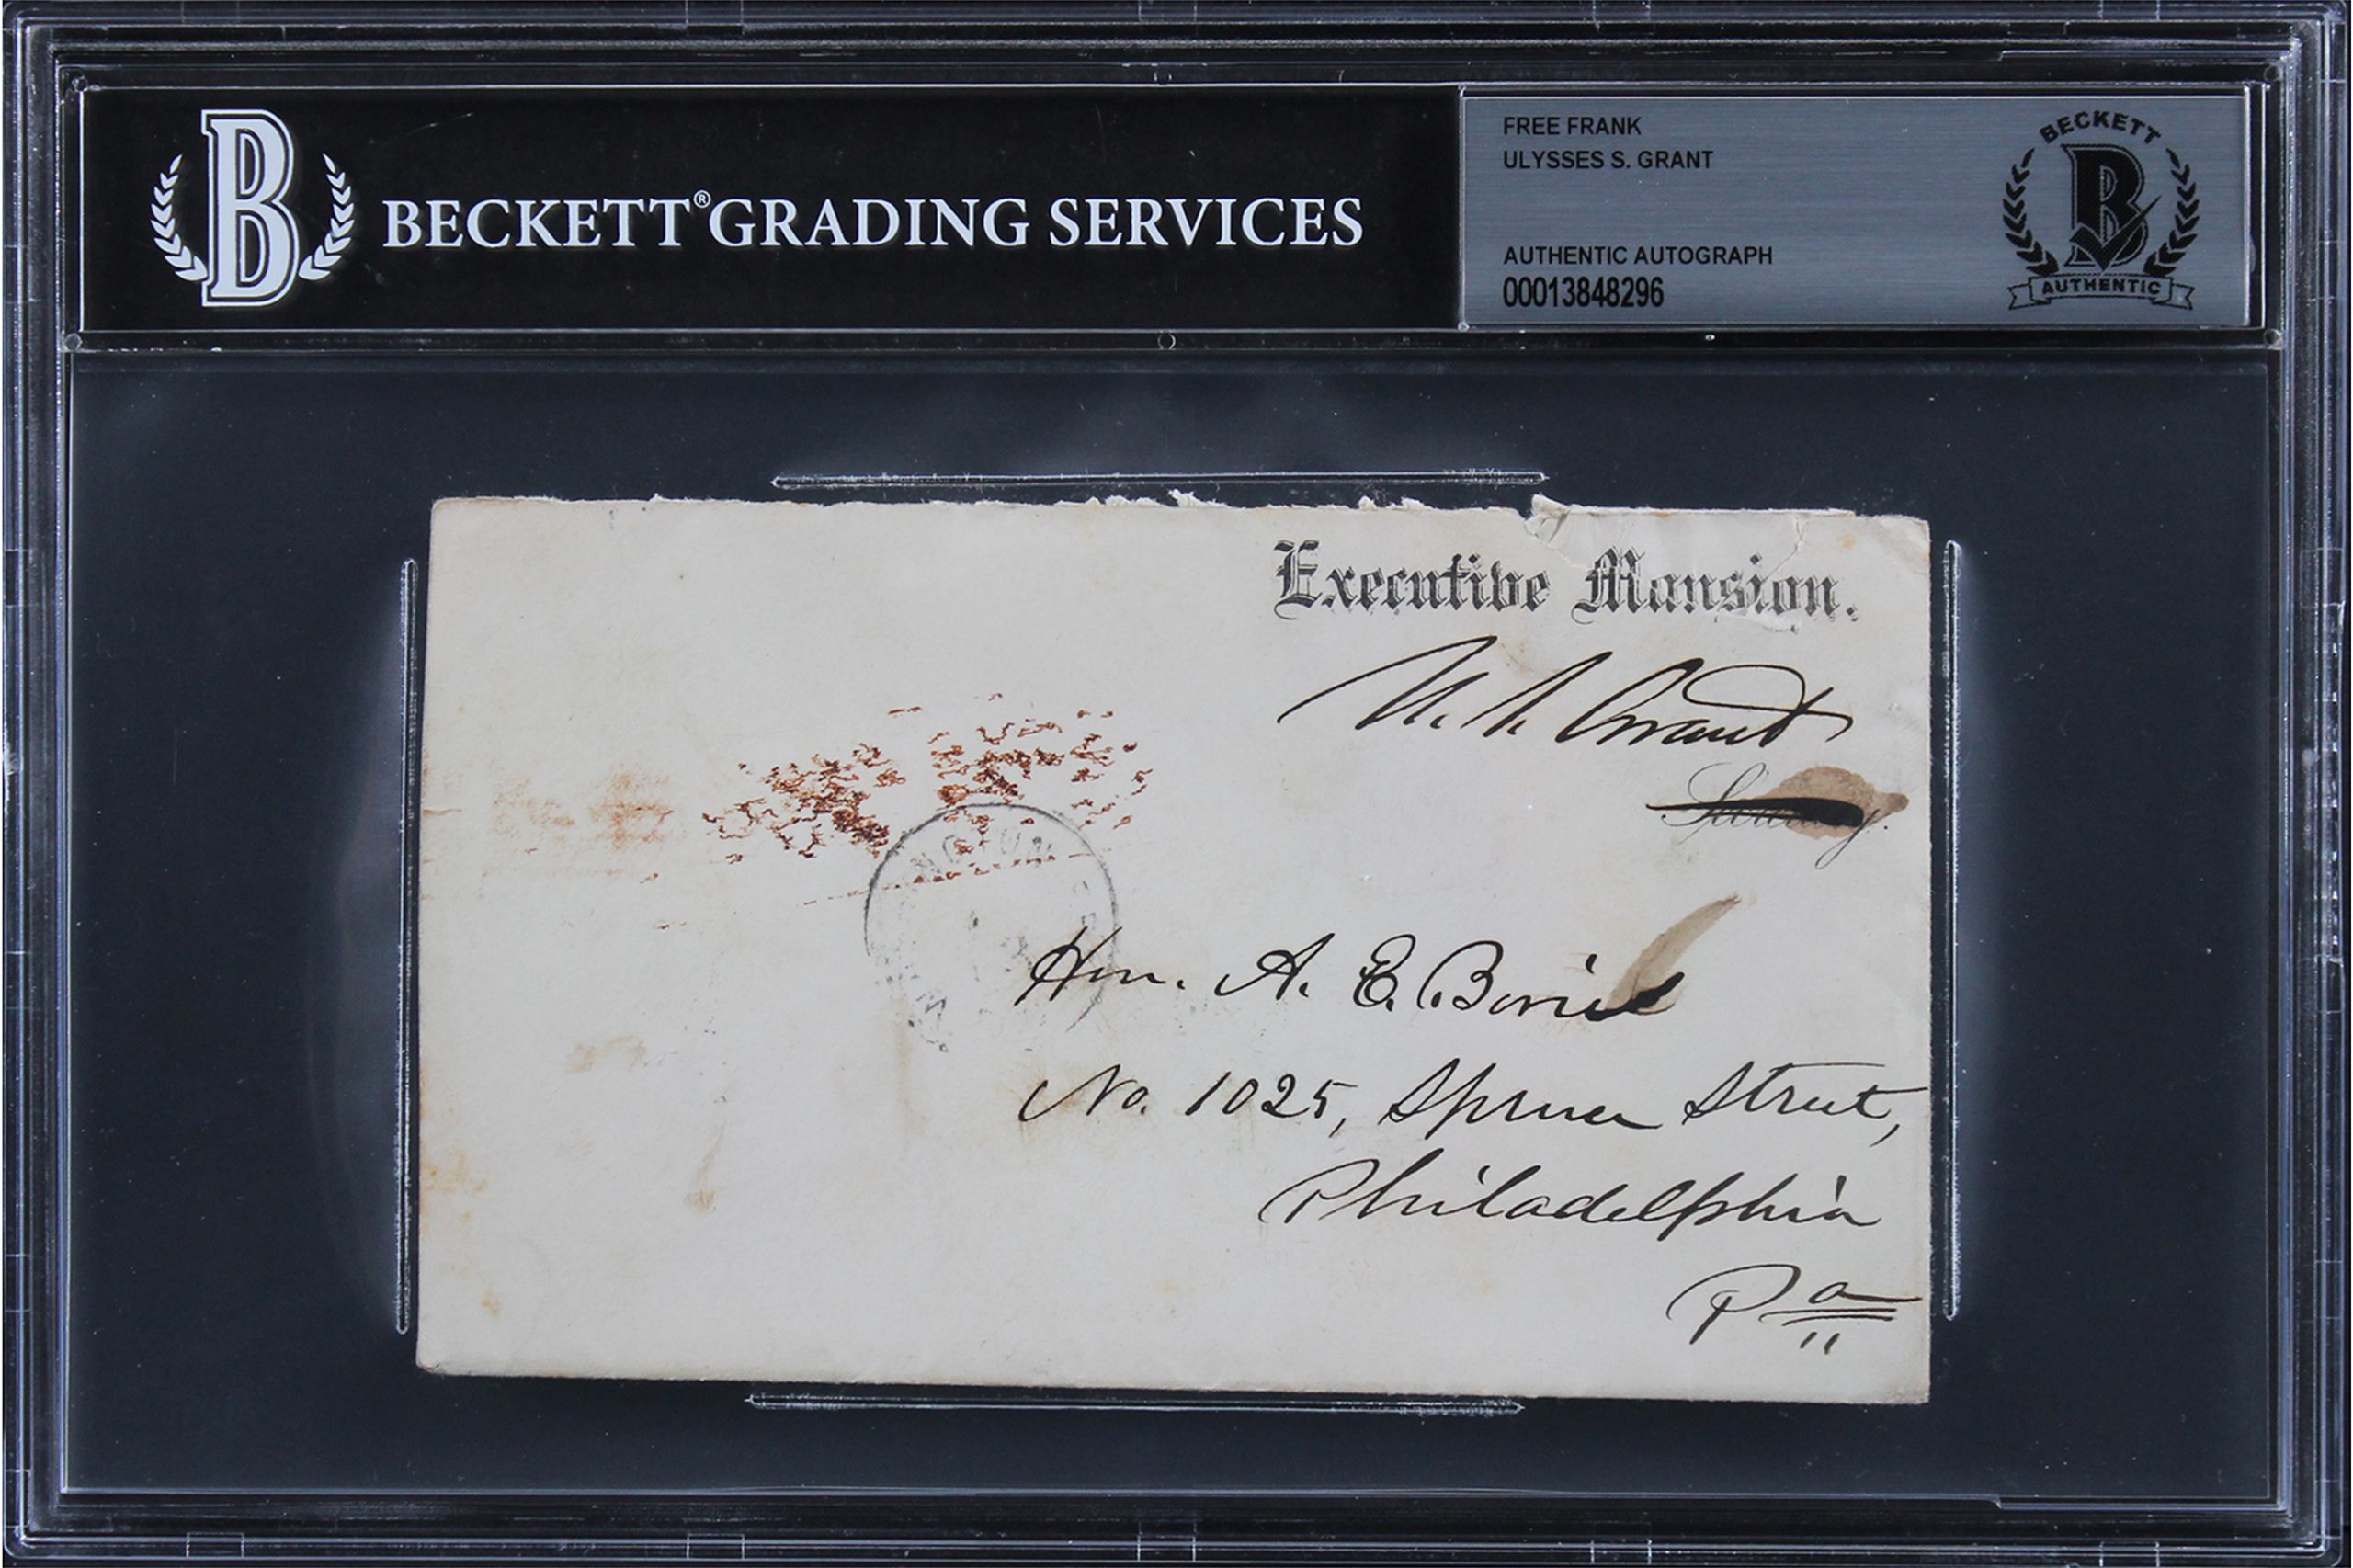 B BECKETT® GRADING SERVICES
FREE FRANK
ULYSSES S. GRANT
AUTHENTIC AUTOGRAPH
00013848296
BECKETT
B
AUTHENTIC
Executive Mansion.
U. S. Grant
Secretary.
Hon. A. E. Borie
No. 1025, Spruce Street,
Philadelphia
Pa